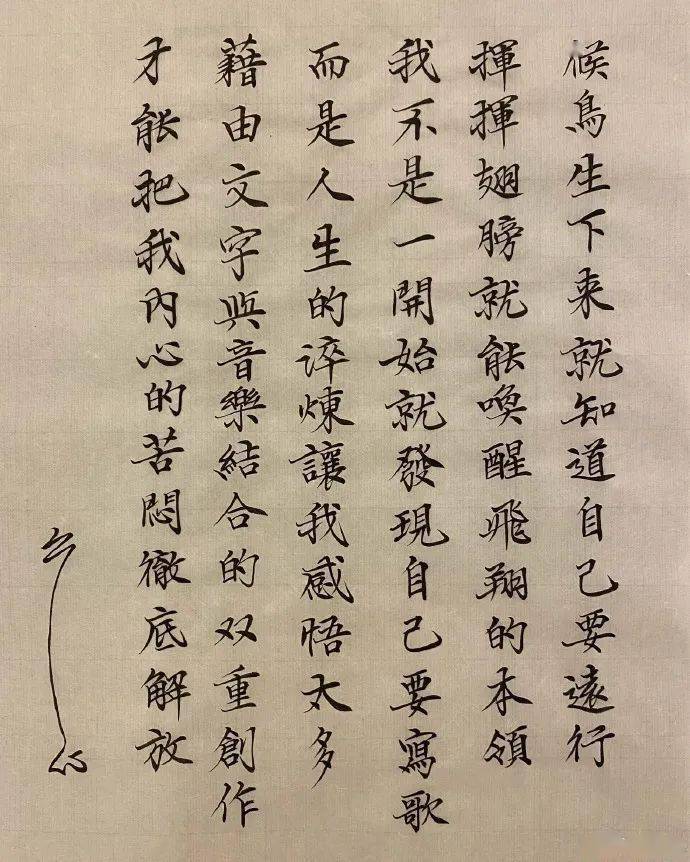 候鳥生下来就知道自己要遠行
揮揮翅膀就能喚醒飛翔的本領
我不是一開始就發現自己要寫歌
而是人生的淬煉讓我感悟太多
藉由文字與音樂結合的双重創作
才能把我內心的苦悶徹底解放